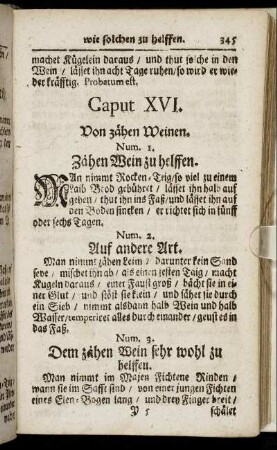 wie solchen zu helffen. 345
machet Kügelein daraus / und thut solche in den
Wein / lässet ihn acht Tage ruhen / so wird er wie-
der kräfftig. Probatum est.
Caput XVI.
Von zähen Weinen.
Num. 1.
Zähen Wein zu helffen.
MAn nimmt Rocken-Teig / so viel zu einem
Laib Brod gebühret / lässet ihn halb auf
gehen / thut ihn ins Faß / und lässet ihn auf
den Boden sincken / er richtet sich in fünff
oder sechs Tagen.
Num. 2.
Auf andere Art.
Man nimmt zähen Leim / darunter kein Sand
seye / mischet ihn ab / als einen festen Taig / macht
Kugeln daraus / einer Faust groß / bächt sie in ei-
ner Glut / und stöst sie klein / und sähet sie durch
ein Sieb / nimmt alsdann halb Wein und halb
Wasser / temperiret alles durch einander / geust es in
das Faß.
Num. 3.
Dem zähen Wein sehr wohl zu
helffen.
Man nimmt im Majen Fichtene Rinden /
wann sie im Safft sind / von einer jungen Fichten
eines Elen-Bogen lang / und drey Finger breit /
Y 5 schälet